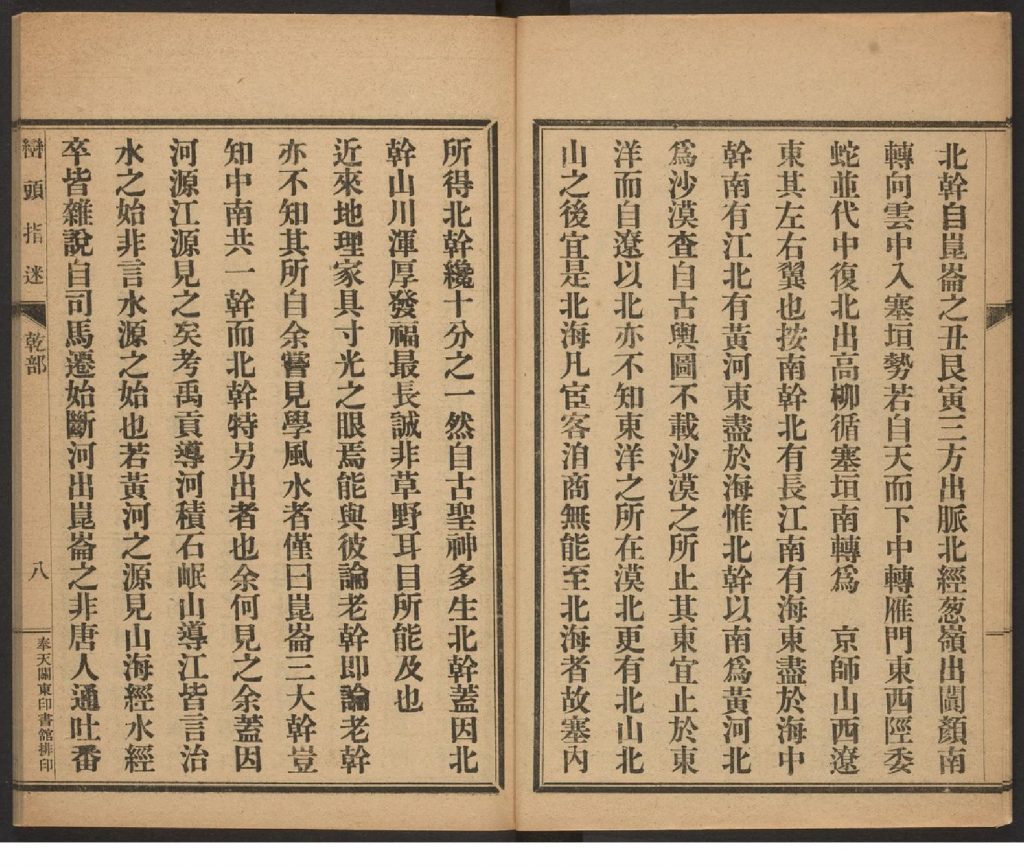 北幹自崑崙之丑艮寅三方出脈北經葱嶺出闐顏南
轉向雲中入塞垣勢若自天而下中轉雁門東西陘委
蛇並代中復北出高柳循塞垣南轉爲　京師山西遼
東其左右翼也按南幹北有長江南有海東盡於海中
幹南有江北有黃河東盡於海惟北幹以南爲黃河北
爲沙漠查自古輿圖不載沙漠之所止其東宜止於東
洋而自遼以北亦不知東洋之所在漠北更有北山北
山之後宜是北海凡宦客洎商無能至北海者故塞內
所得北幹纔十分之一然自古聖神多生北幹蓋因北
幹山川渾厚發福最長誠非草野耳目所能及也
近來地理家具寸光之眼焉能與彼論老幹即論老幹
亦不知其所自余嘗見學風水者僅曰崑崙三大幹豈
知中南共一幹而北幹特另出者也余何見之余蓋因
河源江源見之矣考禹貢導河積石岷山導江皆言治
水之始非言水源之始也若黃河之源見山海經水經
卒皆雜說自司馬遷始斷河出崑崙之非唐人通吐番
巒頭指迷　乾部　八　奉天關東印書館排印